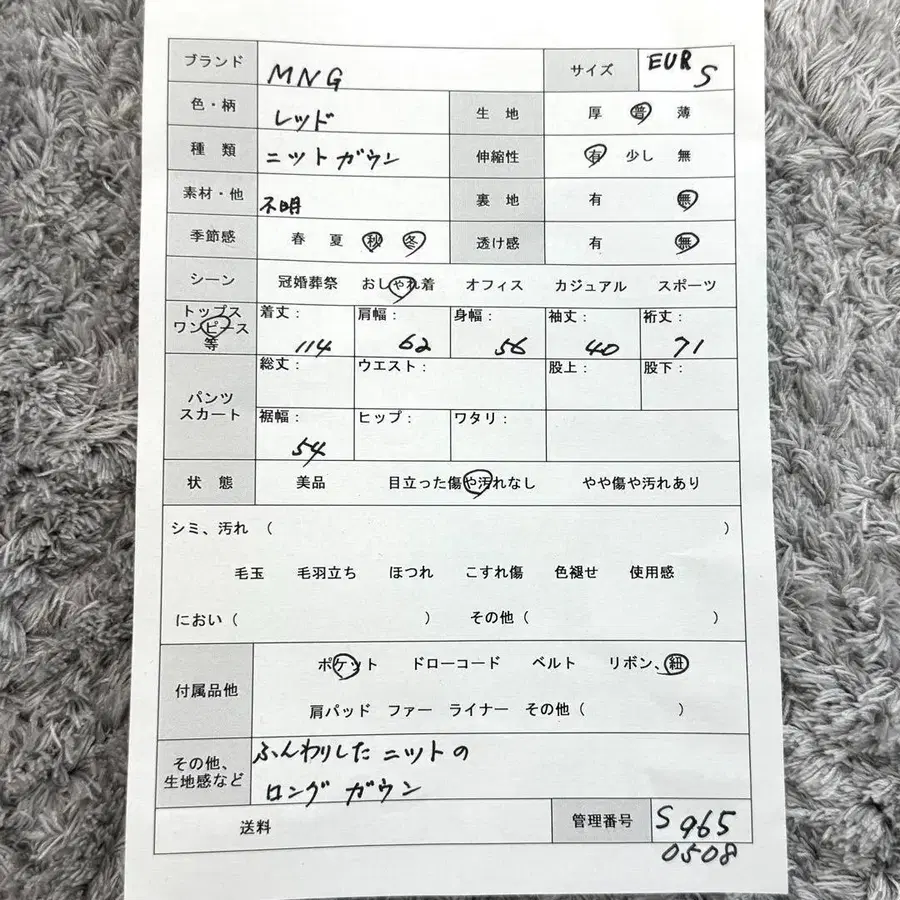 ブランド MNG サイズ EUR S
色・柄 レッド 生 地 厚 普 薄
種 類 ニットガウン 伸縮性 有 少し 無
素材・他 不明 裏 地 有 無
季節感 春 夏 秋 冬 透け感 有 無
シーン 冠婚葬祭 おしゃれ着 オフィス カジュアル スポーツ
トップス ワンピース 等 着丈: 114 肩幅: 62 身幅: 56 袖丈: 40 裄丈: 71
パンツ スカート 総丈: ウエスト: 股上: 股下:
裾幅: 54 ヒップ: ワタリ:
状 態 美品 目立った傷や汚れなし やや傷や汚れあり
シミ、汚れ ( )
毛玉 毛羽立ち ほつれ こすれ傷 色褪せ 使用感
におい ( ) その他 ( )
付属品他 ポケット ドローコード ベルト リボン、紐
肩パッド ファー ライナー その他 ( )
その他、 生地感など ふんわりした ニットの
ロング ガウン
送料 管理番号 S 965
0508